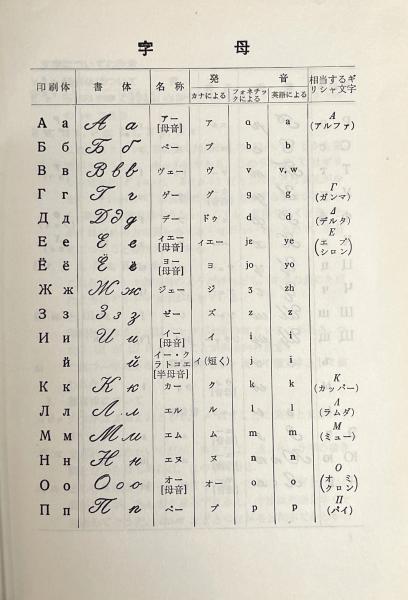 字 母
印刷体 書 体 名 称 発 音 相当するギリシャ文字
カナによる フォネチックによる 英語による
А а А а アー [母音] ア ɑ a Α (アルファ)
Б б Б б ベー ブ b b
В в В в в ヴェー ヴ v v, w
Г г Г г ゲー グ g g Γ (ガンマ)
Д д Д д д デー ドゥ d d Δ (デルタ)
Е е Е е イェー [母音] イェー jɛ ye Ε (エプシロン)
Ё ё Ё ё ヨー [母音] ヨ jo yo
Ж ж Ж ж ジェー ジ ʒ zh
З з З з з ゼー ズ z z
И и И и イー [母音] イ i i
й й イー・クラトコエ [半母音] イ (短く) j i
К к К к カー ク k k Κ (カッパー)
Л л Л л エル ル l l Λ (ラムダ)
М м М м エム ム m m Μ (ミュー)
Н н Н н エヌ ヌ n n
О о О о о オー [母音] オー o o Ο (オミクロン)
П п П п ペー プ p p Π (パイ)